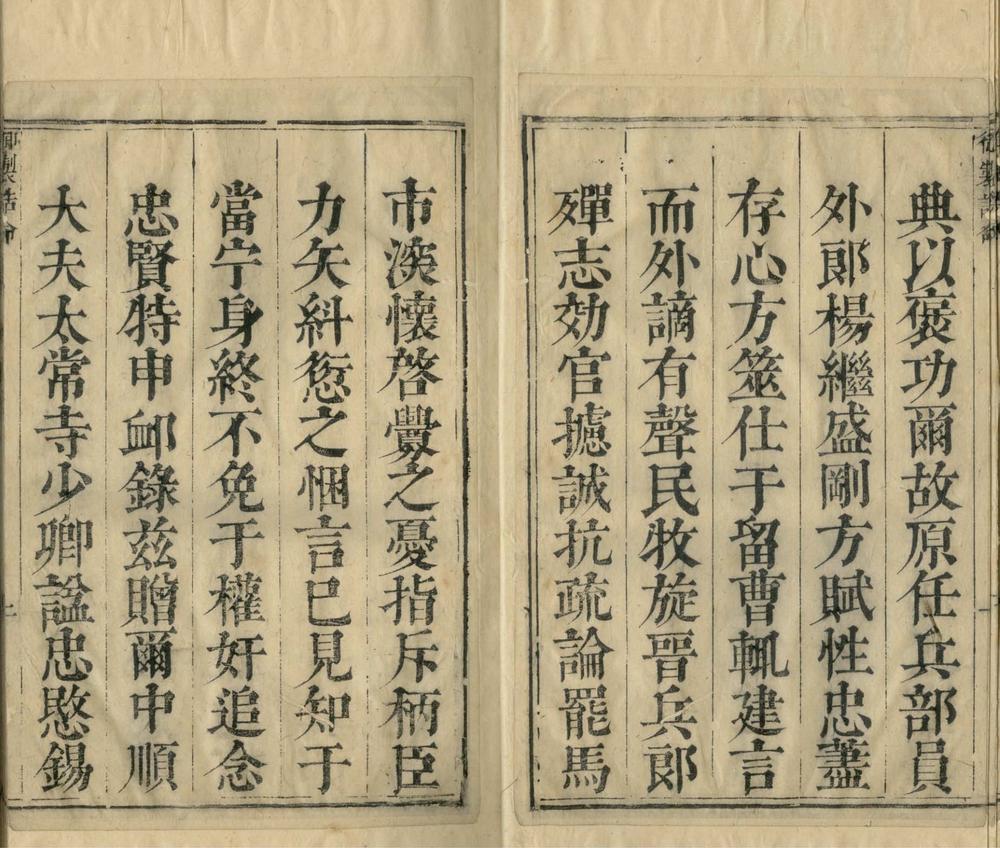 典以褒功爾故原任兵部員
外郎楊繼盛剛方賦性忠藎
存心方筮仕于留曹輒建言
而外謫有聲民牧旋晉兵郎
殫志効官攄誠抗疏論罷馬
市深懷啓釁之憂指斥柄臣
力矢糾愆之悃言巳見知于
當宁身終不免于權奸追念
忠賢特申卹錄兹贈爾中順
大夫太常寺少卿諡忠愍錫